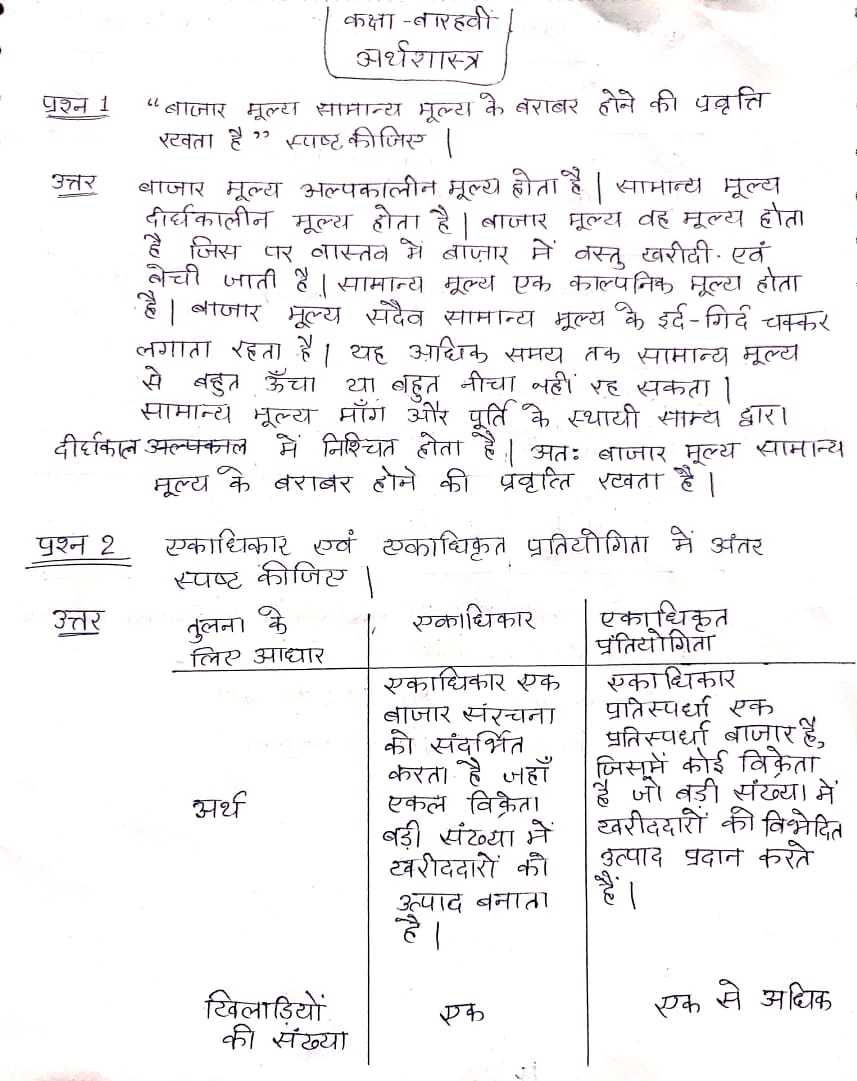 कक्षा - बारहवीं
अर्थशास्त्र
प्रश्न 1 “बाजार मूल्य सामान्य मूल्य के बराबर होने की प्रवृत्ति
रखता है” स्पष्ट कीजिए |
उत्तर बाजार मूल्य अल्पकालीन मूल्य होता है | सामान्य मूल्य
दीर्घकालीन मूल्य होता है | बाजार मूल्य वह मूल्य होता
है जिस पर वास्तव में बाज़ार में वस्तु खरीदी एवं
बेची जाती है | सामान्य मूल्य एक काल्पनिक मूल्य होता
है | बाजार मूल्य सदैव सामान्य मूल्य के इर्द-गिर्द चक्कर
लगाता रहता है | यह अधिक समय तक सामान्य मूल्य
से बहुत ऊँचा या बहुत नीचा नहीं रह सकता |
सामान्य मूल्य माँग और पूर्ति के स्थायी साम्य द्वारा
दीर्घकाल अल्पकाल में निश्चित होता है | अतः बाजार मूल्य सामान्य
मूल्य के बराबर होने की प्रवृत्ति रखता है |
प्रश्न 2 एकाधिकार एवं एकाधिकृत प्रतियोगिता में अंतर
स्पष्ट कीजिए |
उत्तर
तुलना के
लिए आधार
एकाधिकार
एकाधिकृत
प्रतियोगिता
अर्थ
एकाधिकार एक
बाजार संरचना
को संदर्भित
करता है जहाँ
एकल विक्रेता
बड़ी संख्या में
खरीददारों को
उत्पाद बनाता
है |
एकाधिकार
प्रतिस्पर्धा एक
प्रतिस्पर्धा बाजार है,
जिसमें कोई विक्रेता
है जो बड़ी संख्या में
खरीददारों को विभेदित
उत्पाद प्रदान करते
हैं |
खिलाड़ियों
की संख्या
एक
एक से अधिक